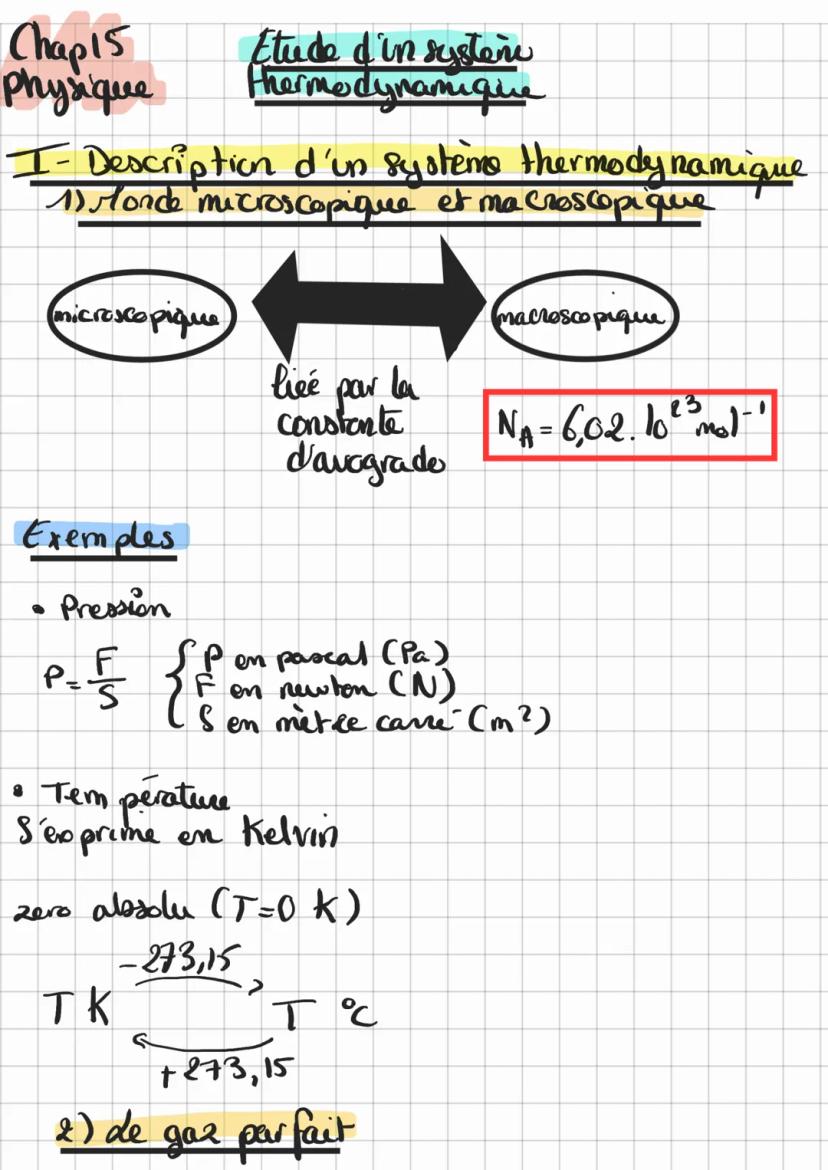 Chap15
Physique
Etude d'un système
thermodynamique
I- Description d'un système thermodynamique
1) Monde microscopique et macroscopique
microscopique
macroscopique
lieé par la
constante
d'avogrado
N_A = 6,02. 10²³ mol⁻¹
Exemples
• Pression
P = F/S { P en pascal (Pa)
F en newton (N)
S en mètre carré (m²)
• Température
S'exprime en Kelvin
zero absolu (T=0 K)
-273,15
T K T °C
+273,15
2) de gaz parfait